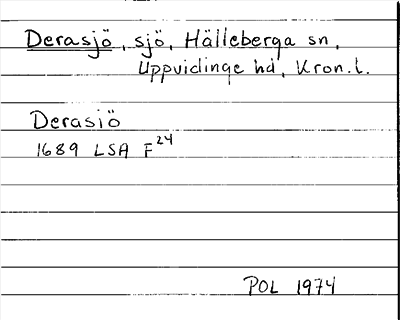 Derasjö, sjö, Hälleberga sn,
Uppvidinge hd, Kron.l.
Derasiö
1689 LSA F24
POL 1974